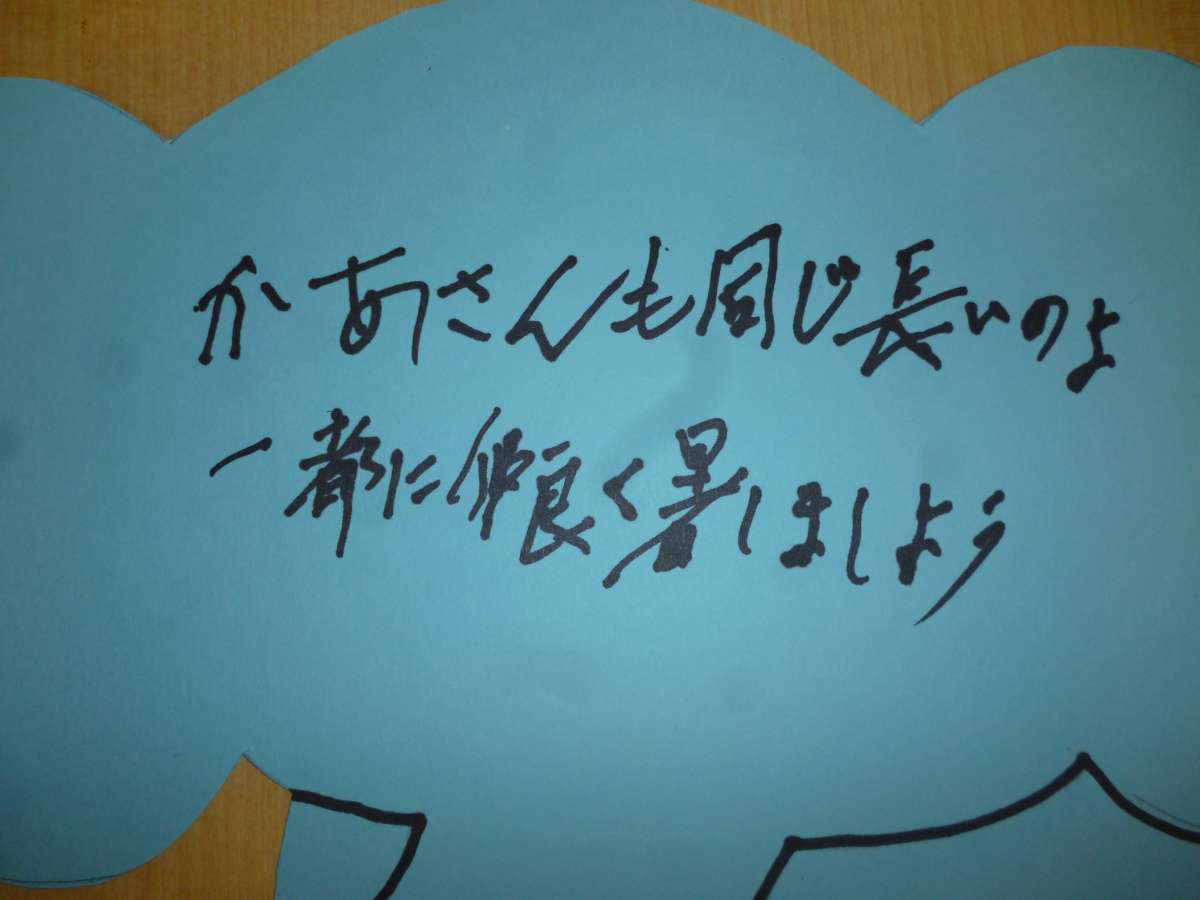 かあさんも同じ長いのよ
一都に仲良く暑しましよう